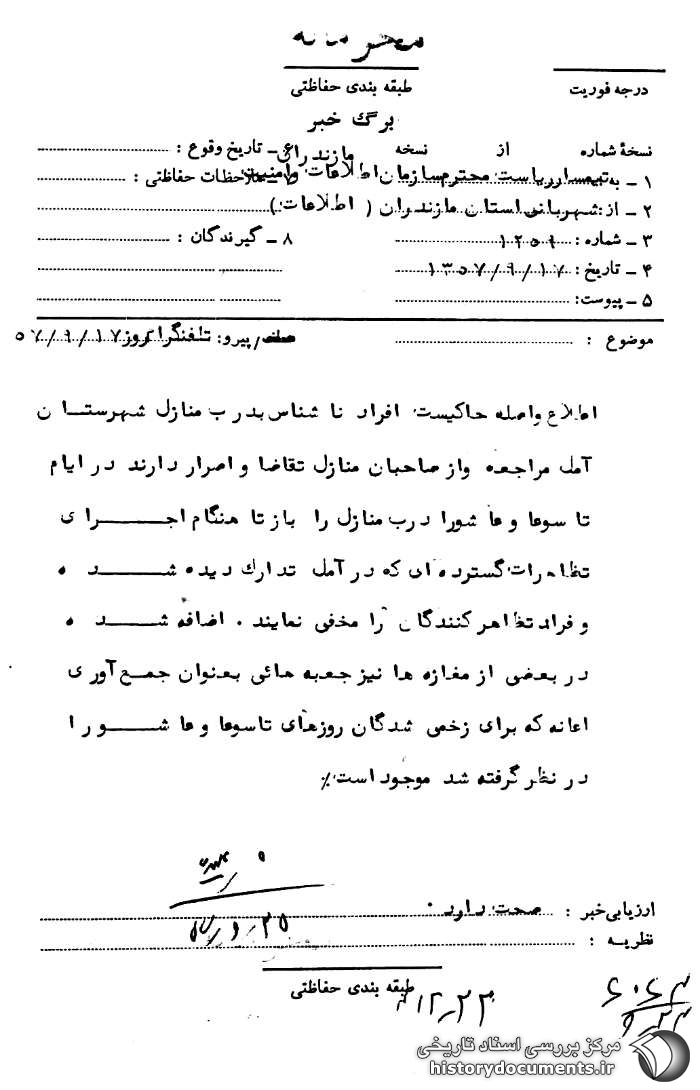 محرمانه
طبقه بندی حفاظتی
درجه فوریت
برگ خبر
نسخهٔ شماره از نسخه
۶ ـ تاریخ وقوع :
۱ ـ به تیمسار ریاست محترم سازمان اطلاعات وامنیت مازندران
۷ ـ ملاحظات حفاظتی :
۲ ـ از : شهربانی استان مازندران ( اطلاعات )
۳ ـ شماره : ۱۲۵۹
۸ ـ گیرندگان :
۴ ـ تاریخ : ۱۳۵۷/۹/۱۷
۵ ـ پیوست:
موضوع :
پیرو: تلفنگرام روز ۵۷/۹/۱۷
اطلاع واصله حاکیست افراد نا شناس بدرب منازل شهرستان
آمل مراجعه وازصاحبان منازل تقاضا و اصرار دارند در ایام
تا سوعا و عا شورا درب منازل را باز تا هنگام اجرای
تظاهرات گسترده ای که در آمل تدارك دیده شده
و فراد تظاهر کنندگان را مخفی نمایند . اضافه شده
در بعضی از مغازه ها نیز جعبه هائی بعنوان جمع آوری
اعانه که برای زخمی شدگان روزهای تاسوعا و عا شورا
در نظر گرفته شد موجود است٪
ارزیابی خبر : صحت دارد .
نظریه :
۵۷/۹/۲۵
طبقه بندی حفاظتی
۱۲ـ۲۳
مرکز بررسی اسناد تاریخی
historydocuments.ir